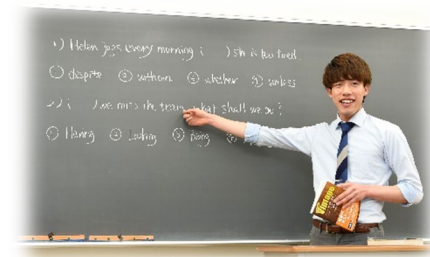 1) Helen jogs every morning ( ) she is too tired.
① despite ② without ③ whether ④ unless
2) ( ) we miss the train, what shall we do?
① ② ③ Being